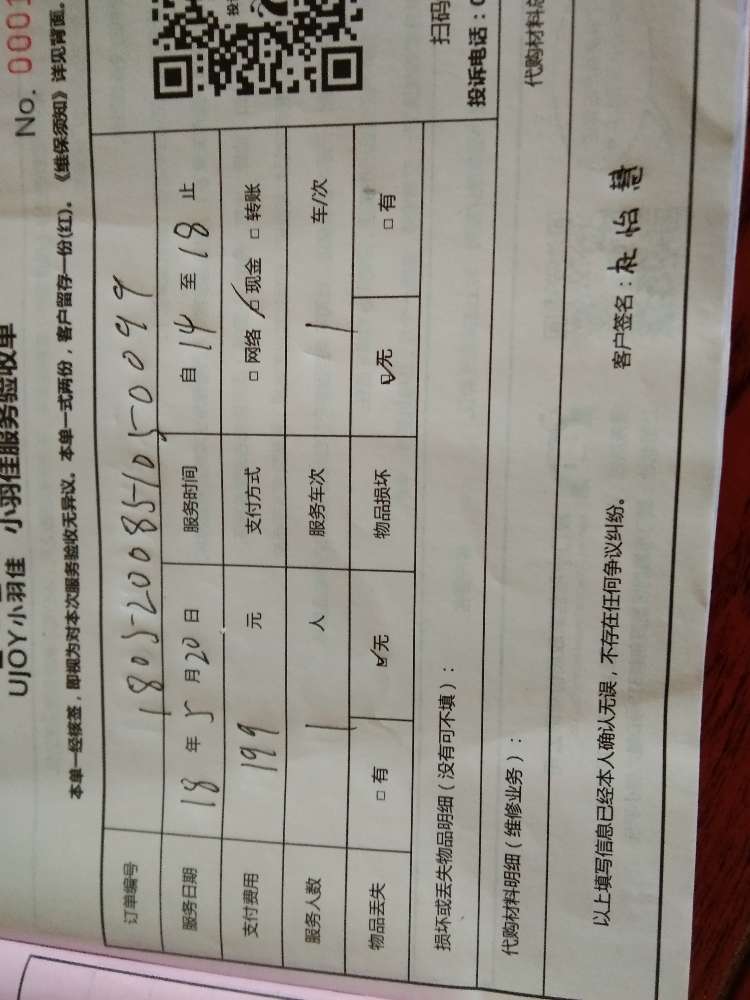 UJOY小羽佳 小羽佳服务验收单
No. 0001
本单一经核签，即视为对本次服务验收无异议。本单一式两份，客户留存一份(红)。《维保须知》详见背面。
订单编号 1805200851050099
服务日期 18 年 5 月 20 日 服务时间 自 14 至 18 止
支付费用 199 元 支付方式 □ 网络 ☑ 现金 □ 转账
服务人数 1 人 服务车次 1 车/次
物品丢失 □ 有 ☑ 无 物品损坏 ☑ 无 □ 有
扫码
投诉电话：0
损坏或丢失物品明细（没有可不填）：
代购材料明细（维修业务）：
代购材料总
以上填写信息已经本人确认无误，不存在任何争议纠纷。
客户签名：杜怡慧